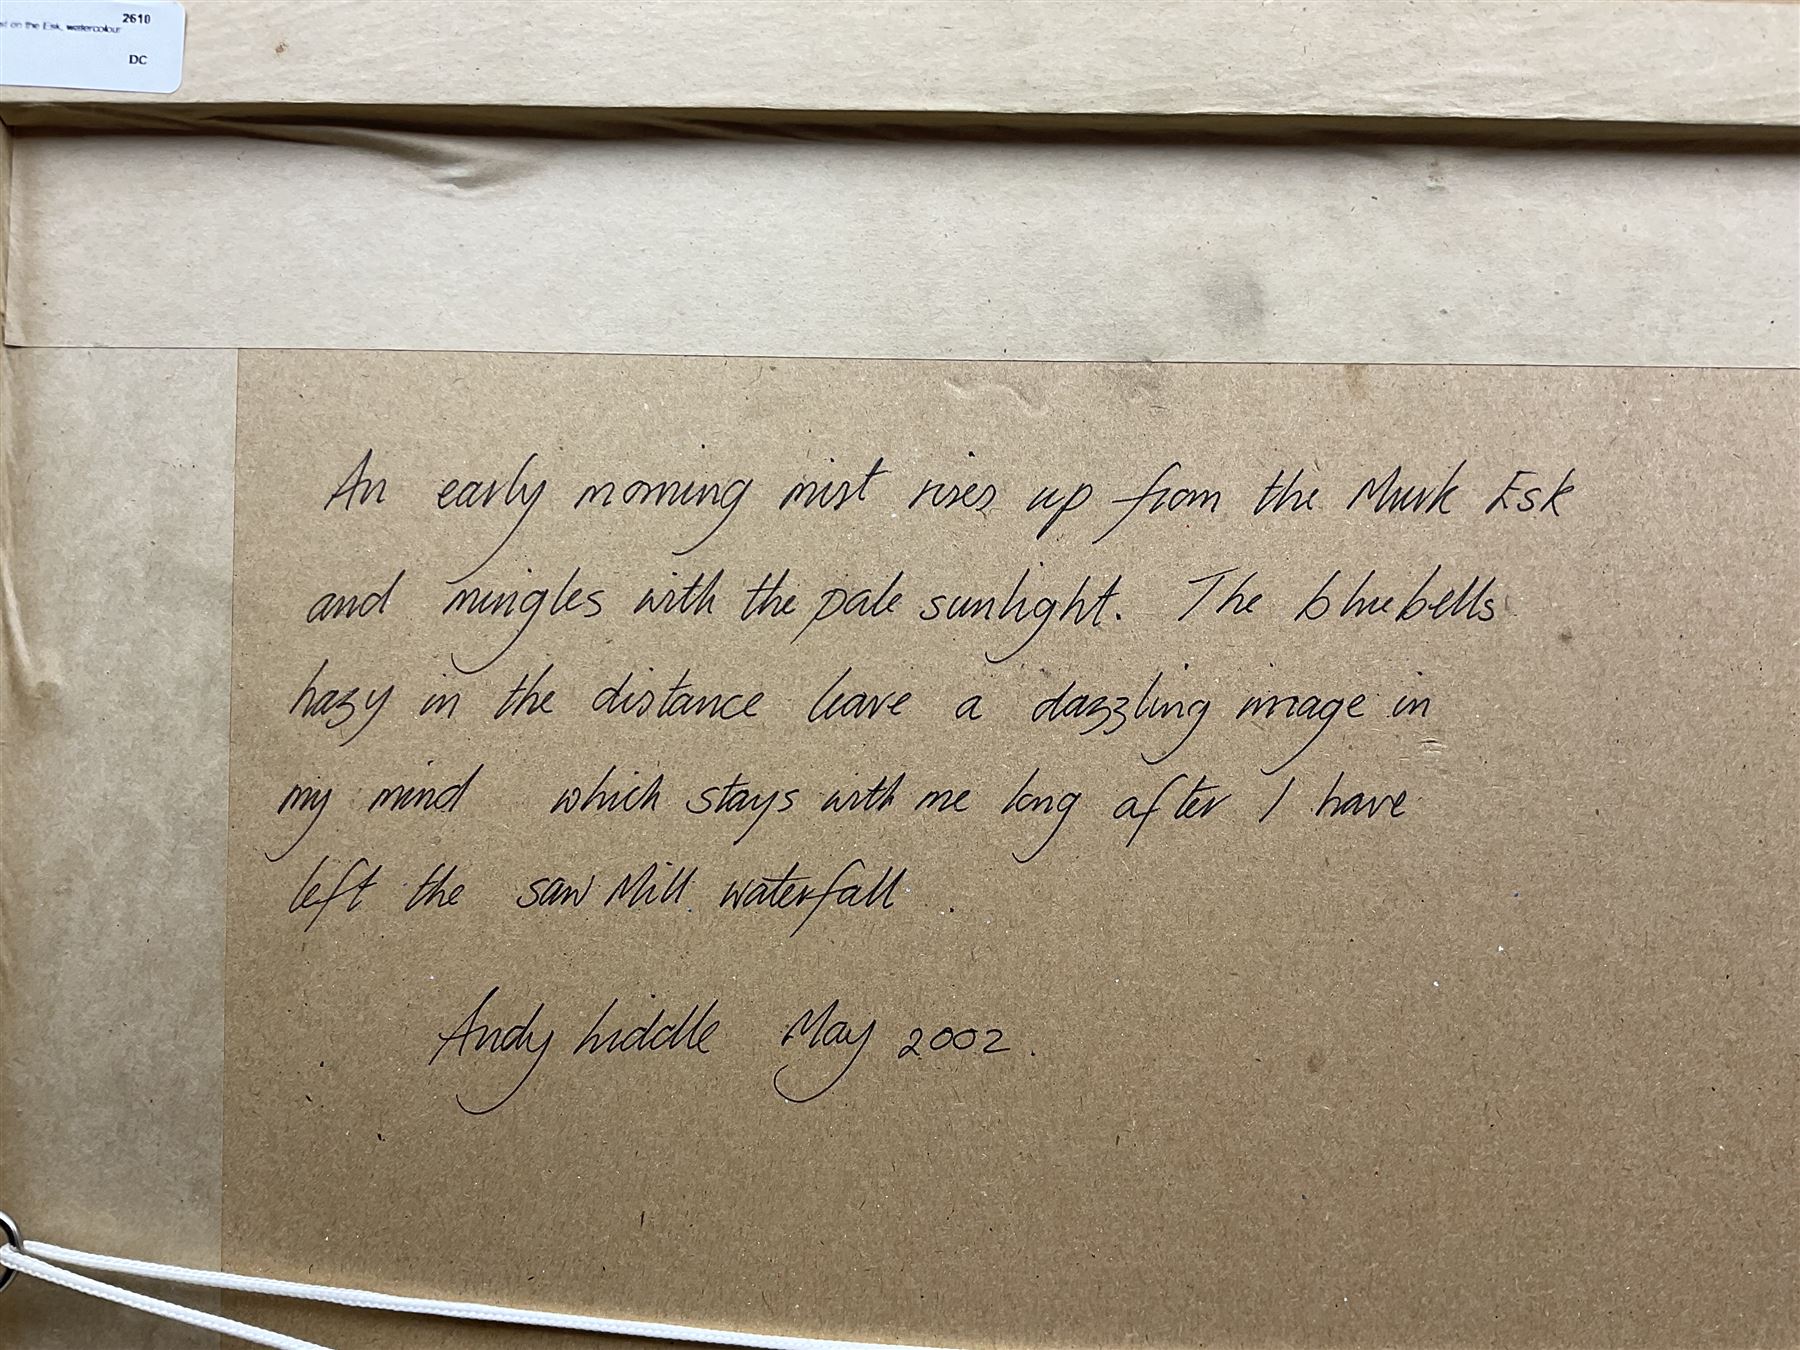 2610
st on the Esk, watercolour
DC
An early morning mist rises up from the Murk Esk
and mingles with the pale sunlight. The bluebells
hazy in the distance leave a dazzling image in
my mind which stays with me long after I have
left the saw Mill waterfall.
Andy Liddle May 2002.